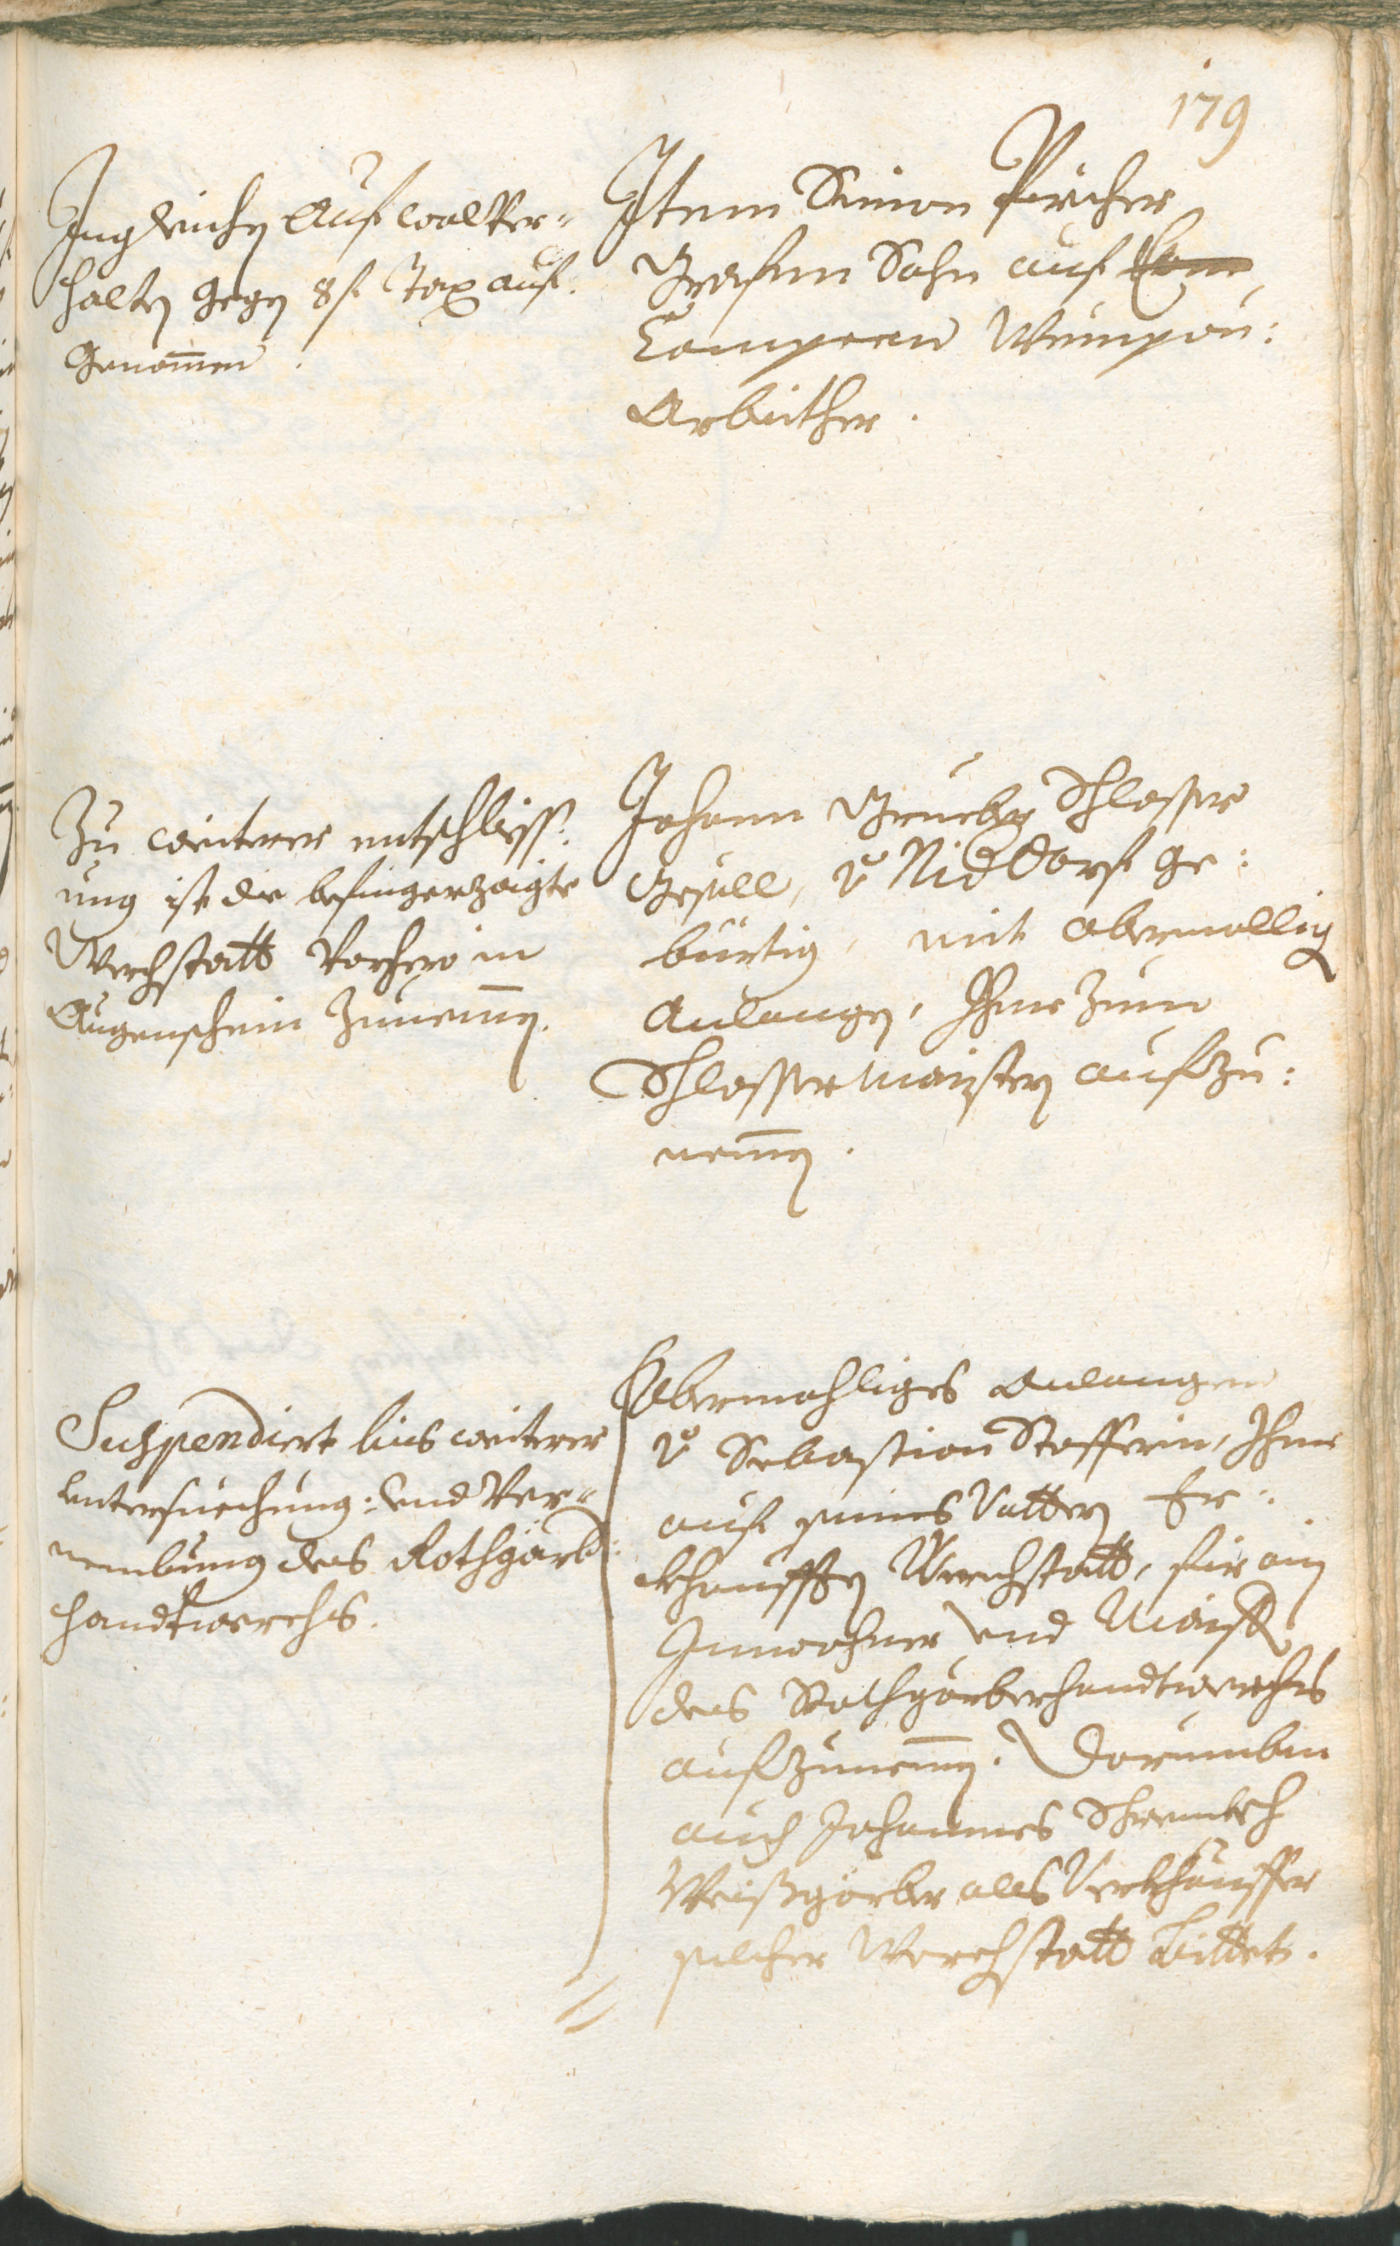 179
Ingleichen auf wolver-
halten gegen 8 f. Tax auf:
genom̄en.
Item Simon Pircher
Grafen Sohn auf Com
Compaan Weinpau:
Arbeither.
Zu weiterer entschliess:
ung ist die befingerzaigte
Werchstatt Vorhero in
Augenschein zunem̄en.
Johann Grueber Schlosser
Gesell, v Niddorf ge:
bürtig, mit abermallig
Anlangen, Ihne zum
Schlossermaister aufzu:
nem̄en.
Suspendiert bis weiterer
untersuechung: und Ver-
nembung des Rothgärb:
handtwerchs.
Abermahliges Anlangen
v Sebastian Stofferin, Ihne
auf seines Vatters Er:
khaufften Werchstatt, für ain
Inwohner und Maister
des Rothgärberhandtwerchs
aufzunem̄en. Darumben
auch Johannes Schrenkh
Weißgärber als Verkhauffer
solcher Werchstatt bittet.